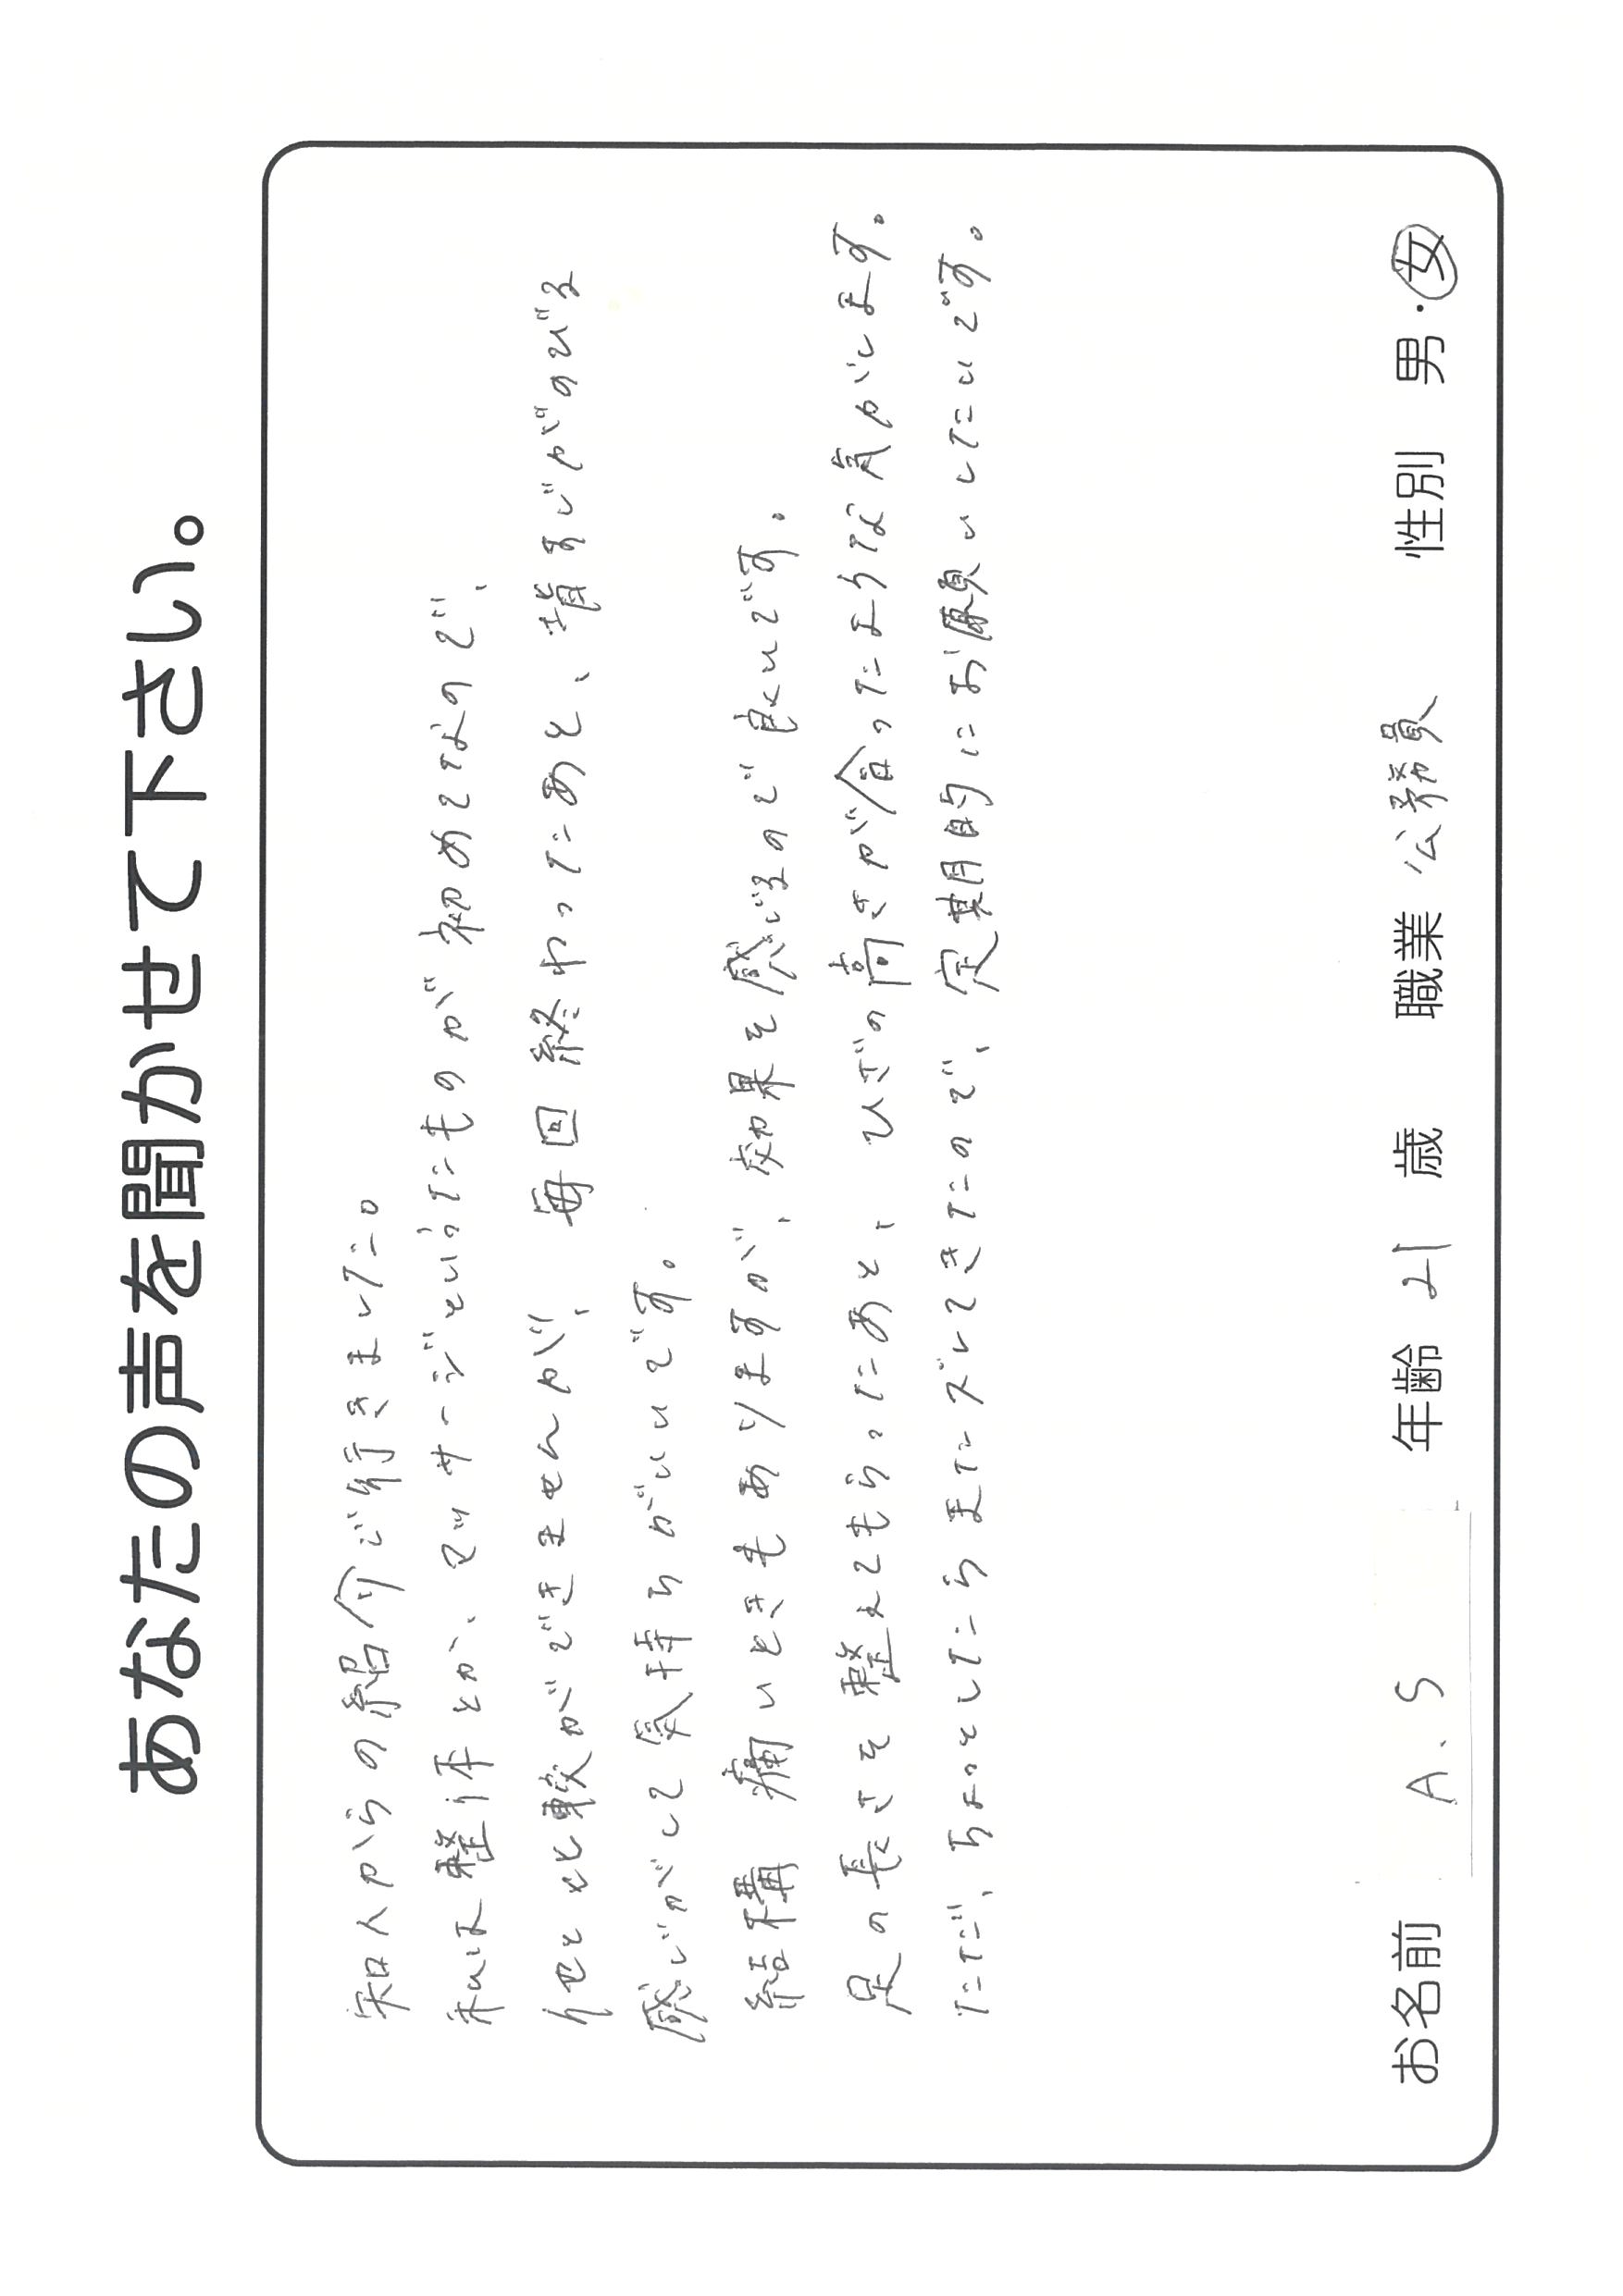 あなたの声を聞かせて下さい。
知人からの紹介で行きました。
私は整体とか、マッサージといったものが初めてなので、
他と比較ができませんが、毎回終わったあと、背すじがのびる
感じがして気持ちがいいです。
結構痛いときもありますが、効果を感じるので良いです。
足の長さを整えてもらったあと、ひざの高さが合ったような気がします。
ただ、ちょっとしたらまたズレてきたので、定期的にお願いしたいです。
お名前 A.S 年齢 21 歳 職業 公務員 性別 男・女